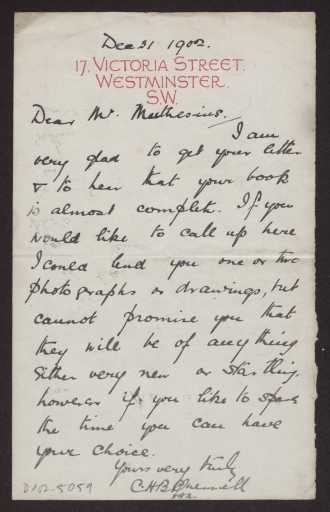 Dec 31 1902.
17, VICTORIA STREET.
WESTMINSTER.
S.W.
Dear Mr. Muthesius.
I am
very glad to get your letter
& to hear that your book
is almost complete. If you
would like to call up here
I could lend you one or two
photographs or drawings, but
cannot promise you that
they will be of anything
either very new or startling,
however if you like to spare
the time you can have
your choice.
Yours very truly
C.H.B. Quennell
D102-5059